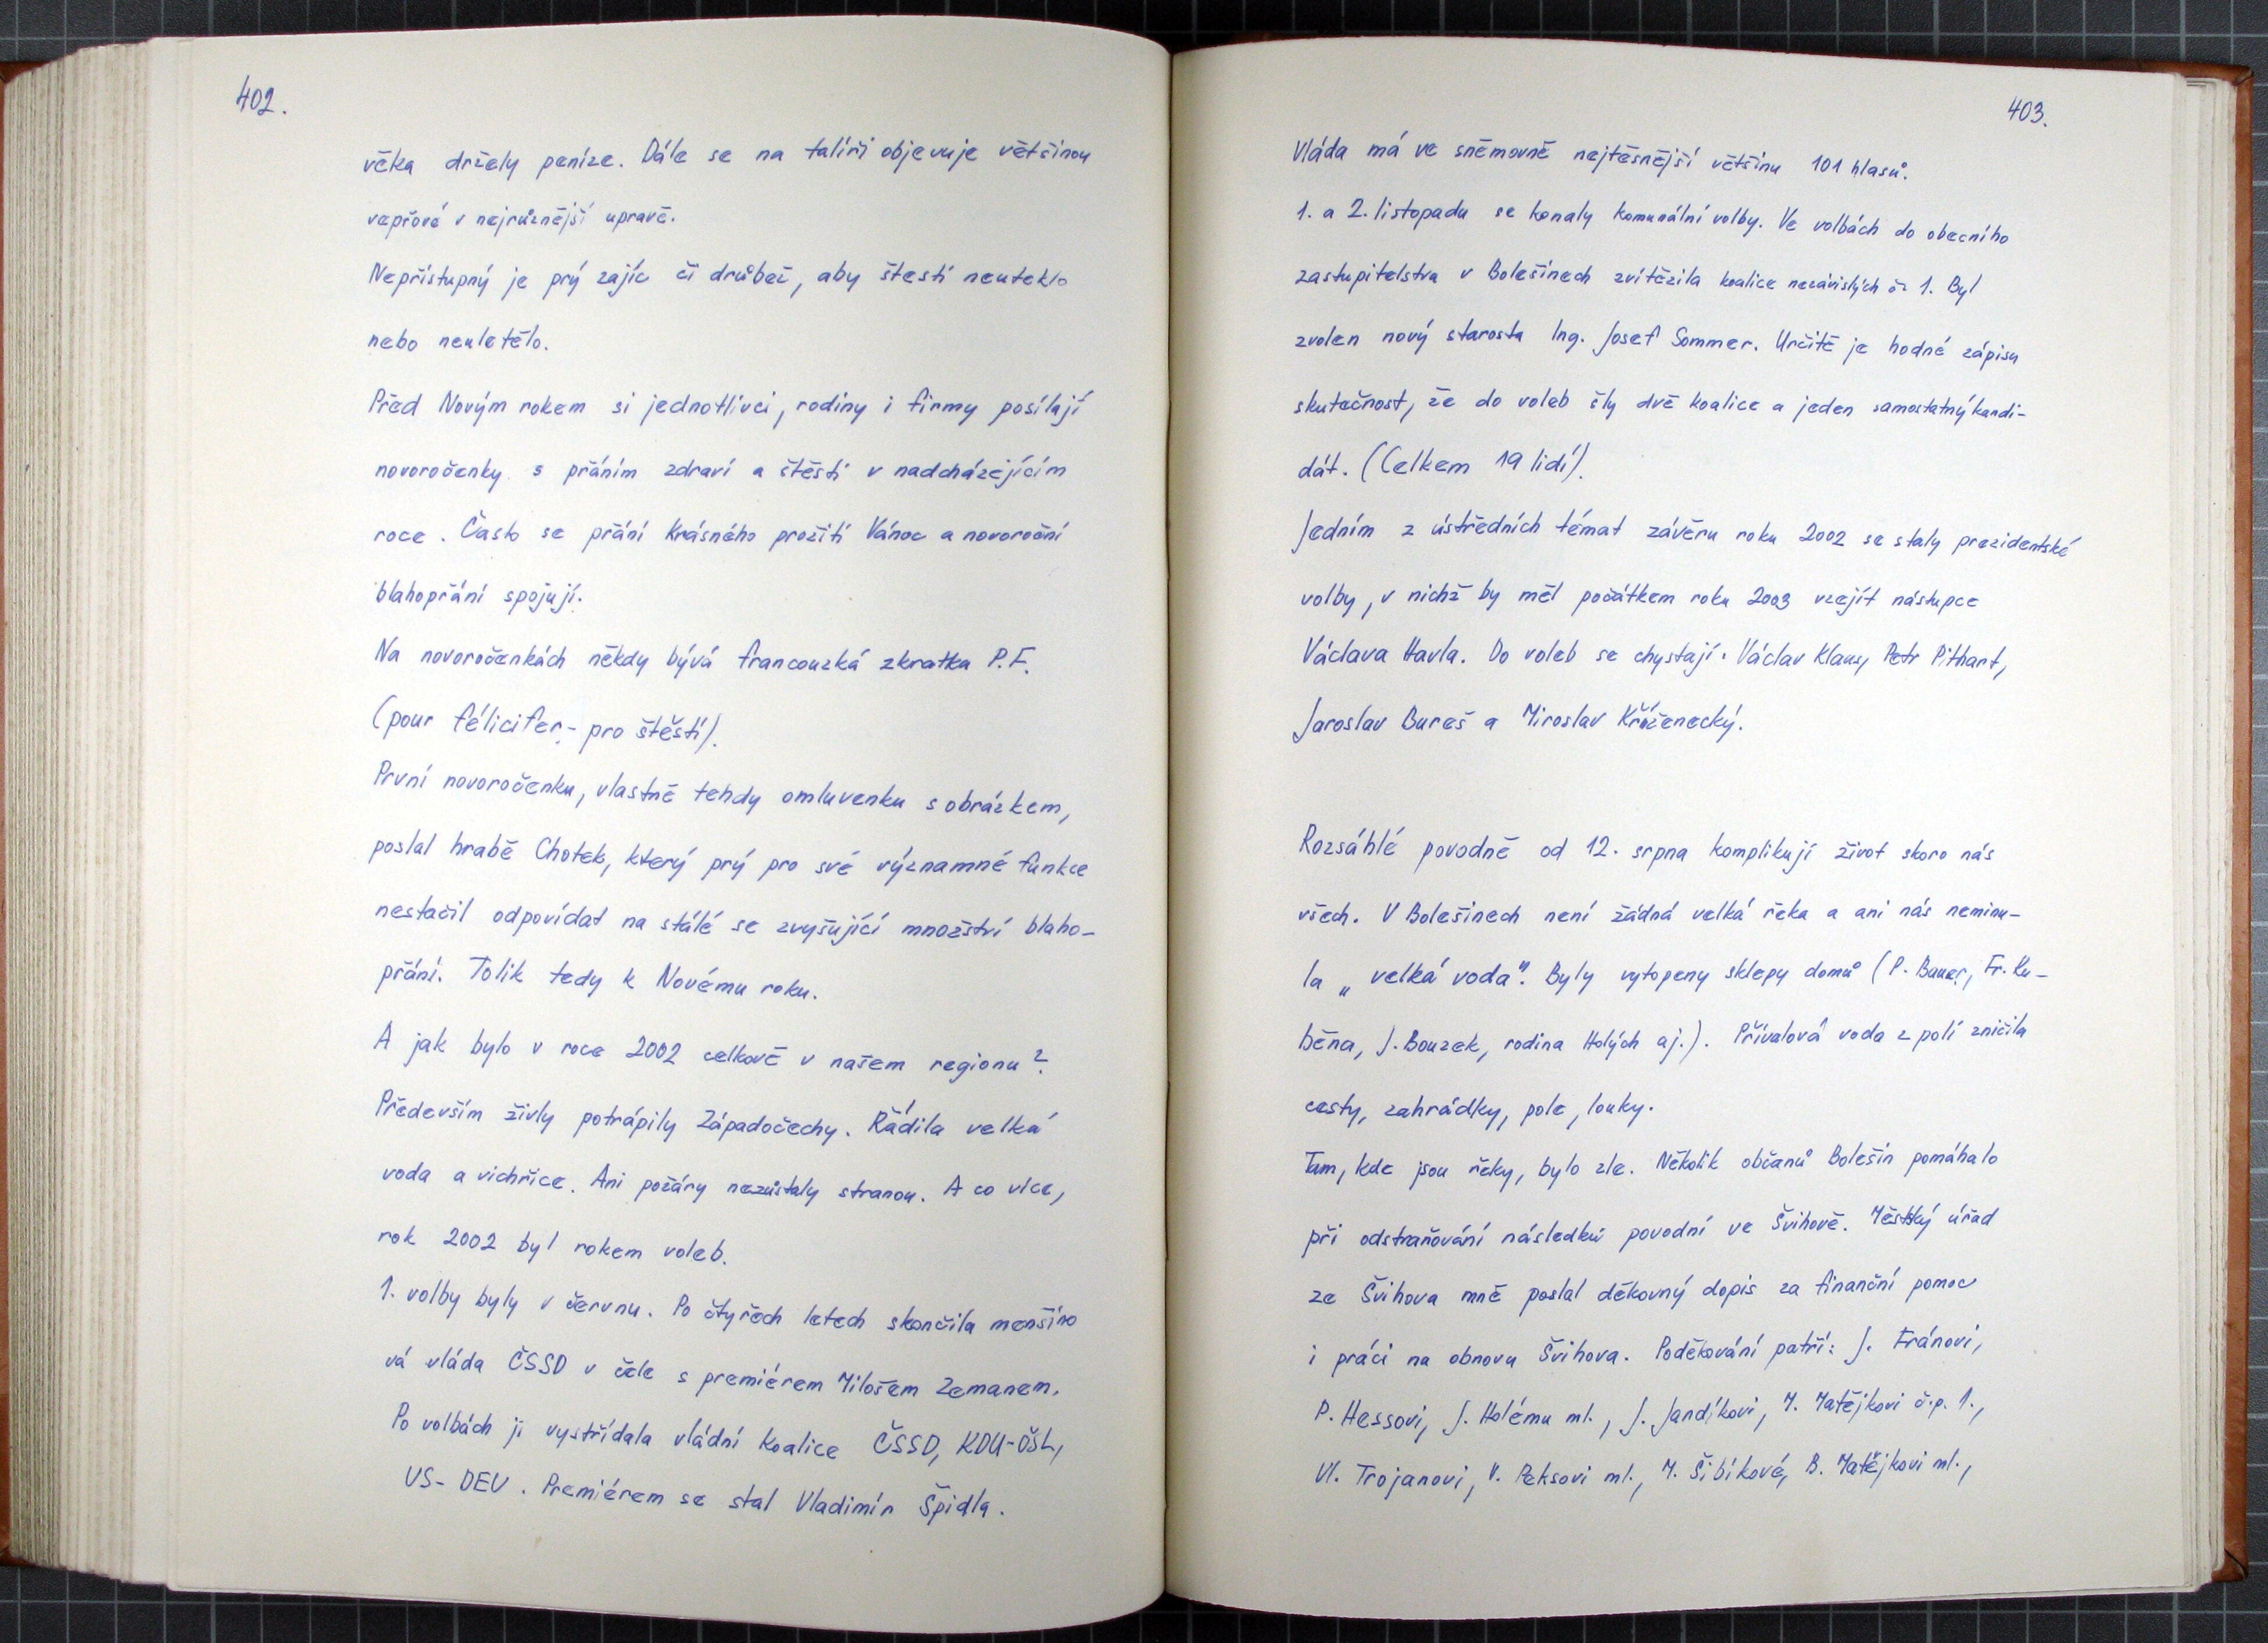 402.
věka držely peníze. Dále se na talíři objevuje většinou
vepřové v nejrůznější upravě.
Nepřístupný je prý zajíc či drůbež, aby štestí neuteklo
nebo neuletělo.
Před Novým rokem si jednotlivci, rodiny i firmy posílají
novoročenky s přáním zdraví a štěstí v nadcházejícím
roce. Často se přání krásného prožití Vánoc a novoroční
blahopřání spojují.
Na novoročenkách někdy bývá francouzká zkratka P.F.
(pour féliciter - pro štěstí).
První novoročenku, vlastně tehdy omluvenku s obrázkem,
poslal hrabě Chotek, který prý pro své významné funkce
nestačil odpovídat na stálé se zvyšující množství blaho-
přání. Tolik tedy k Novému roku.
A jak bylo v roce 2002 celkově v našem regionu?
Především živly potrápily Západočechy. Řádila velká
voda a vichřice. Ani požáry nezůstaly stranou. A co více,
rok 2002 byl rokem voleb.
1. volby byly v červnu. Po čtyřech letech skončila menšino
vá vláda ČSSD v čele s premiérem Milošem Zemanem.
Po volbách ji vystřídala vládní koalice ČSSD, KDU-ČSL,
US-DEU. Premiérem se stal Vladimír Špidla.
403.
Vláda má ve sněmovně nejtěsnější většinu 101 hlasů.
1. a 2. listopadu se konaly komunální volby. Ve volbách do obecního
zastupitelstva v Bolešinech zvítězila koalice nezávislých č. 1. Byl
zvolen nový starosta Ing. Josef Sommer. Určitě je hodné zápisu
skutečnost, že do voleb šly dvě koalice a jeden samostatný kandi-
dát. (Celkem 19 lidí).
Jedním z ústředních témat závěru roku 2002 se staly prezidentské
volby, v nichž by měl počátkem roku 2003 vzejít nástupce
Václava Havla. Do voleb se chystají: Václav Klaus, Petr Pithart,
Jaroslav Bureš a Miroslav Kříženecký.
Rozsáhlé povodně od 12. srpna komplikují život skoro nás
všech. V Bolešinech není žádná velká řeka a ani nás neminu-
la „velká voda". Byly vytopeny sklepy domů (P. Bauer, Fr. Ku-
běna, J. Bouzek, rodina Holých aj.). Přívalová voda z polí zničila
cesty, zahrádky, pole, louky.
Tam, kde jsou řeky, bylo zle. Několik občanů Bolešin pomáhalo
při odstraňování následků povodní ve Švihově. Městský úřad
ze Švihova mně poslal děkovný dopis za finanční pomoc
i práci na obnovu Švihova. Poděkování patří: J. Fránovi,
P. Hessovi, J. Holému ml., J. Jandíkovi, M. Matějkovi č.p. 1.,
Vl. Trojanovi, V. Peksovi ml., M. Šibíkové, B. Matějkovi ml.,